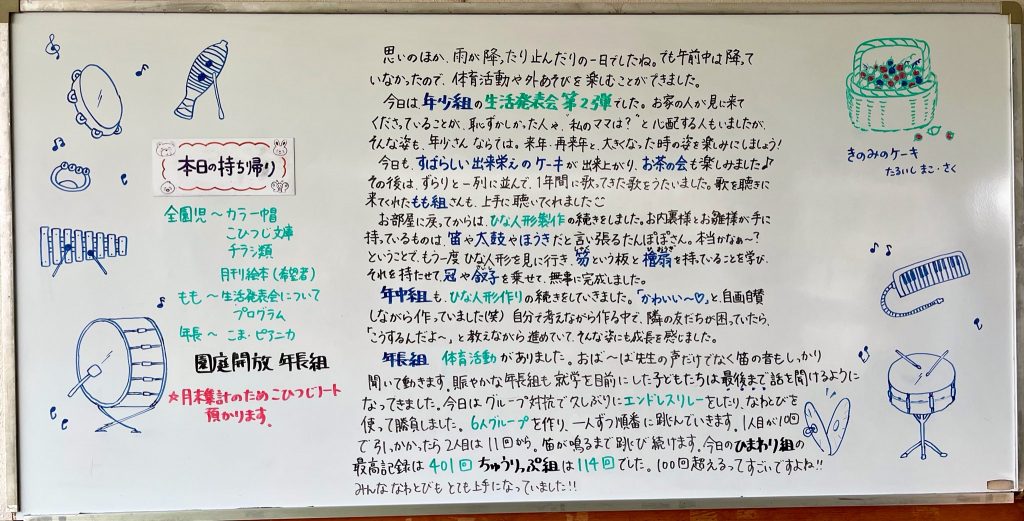 本日の持ち帰り
全園児〜カラー帽
こひつじ文庫
チラシ類
月刊絵本(希望者)
もも〜生活発表会について
プログラム
年長〜こま・ピアニカ
園庭開放 年長組
☆月末集計のためこひつじノート
預かります。
思いのほか、雨が降ったり止んだりの一日でしたね。でも午前中は降って
いなかったので、体育活動や外あそびを楽しむことができました。
今日は年少組の生活発表会第2弾でした。お家の人が見に来て
くださっていることが、恥ずかしかった人や、"私のママは?"と心配する人もいましたが、
そんな姿も、年少さんならでは。来年、再来年と、大きくなった時の姿を楽しみにしましょう!
今日も、すばらしい出来栄えのケーキが出来上がり、お茶の会も楽しみました♪
その後は、ずらりと一列に並んで、1年間に歌ってきた歌をうたいました。歌を聴きに
来てくれたもも組さんも、上手に聴いてくれました☺
お部屋に戻ってからは、ひな人形製作の続きをしました。お内裏様とお雛様が手に
持っているものは、笛や太鼓やほうきだと言い張るたんぽぽさん。本当かなぁ〜?
ということで、もう一度ひな人形を見に行き、笏という板と檜扇を持っていることを学び、
それを持たせて冠や釵子を乗せて、無事に完成しました。
年中組も、ひな人形作りの続きをしていきました。「かわいい〜♡」と、自画自賛
しながら作っていました(笑) 自分で考えながら作る中で、隣の友だちが困っていたら、
「こうするんだよ〜」と教えながら進めていて、そんな姿にも成長を感じました。
年長組 体育活動がありました。おば〜ば先生の声だけでなく笛の音もしっかり
聞いて動きます。賑やかな年長組も就学を目前にした子どもたちは最後まで話を聞けるように
なってきました。今日はグループ対抗で久しぶりにエンドレスリレーをしたり、なわとびを
使って勝負しました。6人グループを作り、一人ずつ順番に跳んでいきます。1人目が10回
で引っかかったら2人目は11回から。笛が鳴るまで跳び続けます。今日のひまわり組の
最高記録は401回 ちゅうりっぷ組は114回でした。100回超えるってすごいですよね!!
みんななわとびもとても上手になっていました!!
きのみのケーキ
たるいしまこ・さく